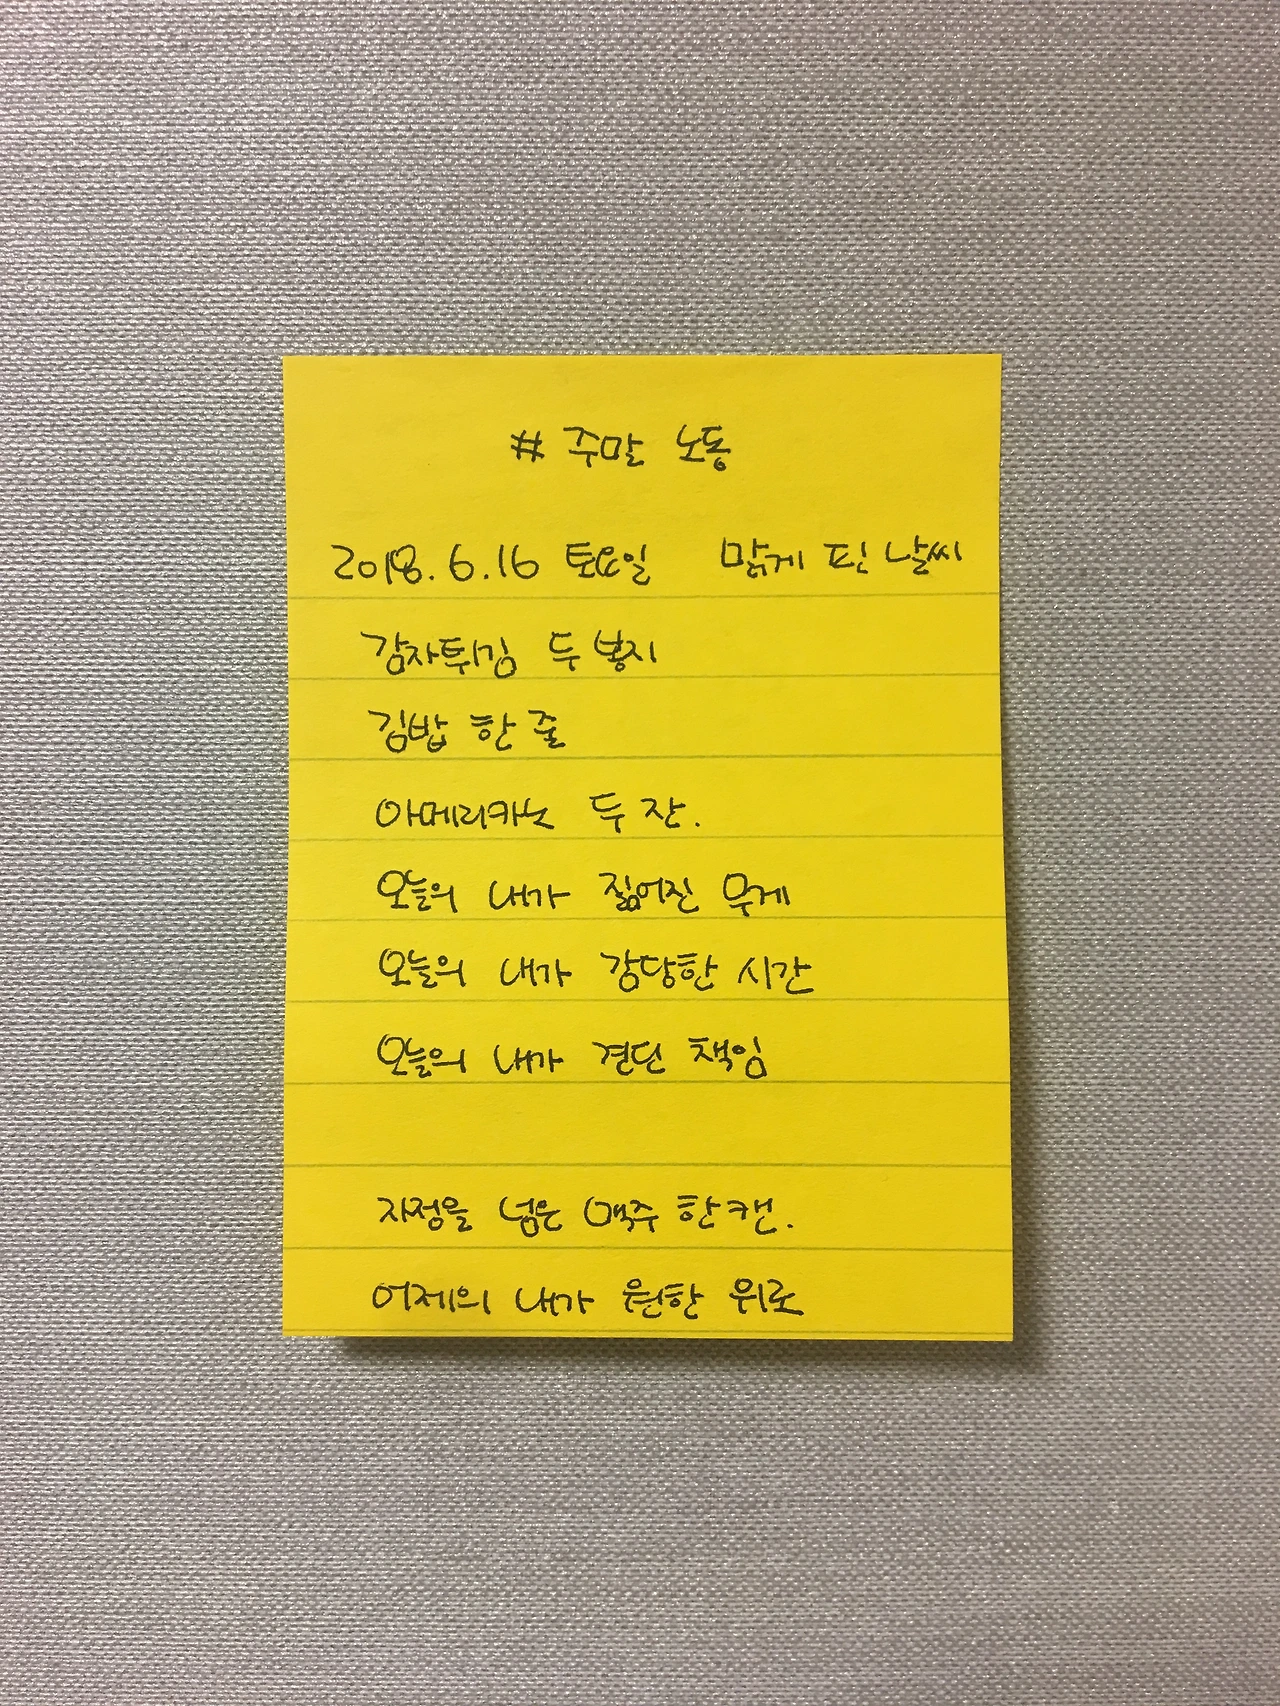 # 주말 노동
2018.6.16 토요일 맑게 핀 날씨
감자튀김 두 봉지
김밥 한 줄
아메리카노 두 잔.
오늘의 내가 짊어진 무게
오늘의 내가 감당한 시간
오늘의 내가 견딘 책임
자정을 넘은 맥주 한 캔.
어제의 내가 원한 위로